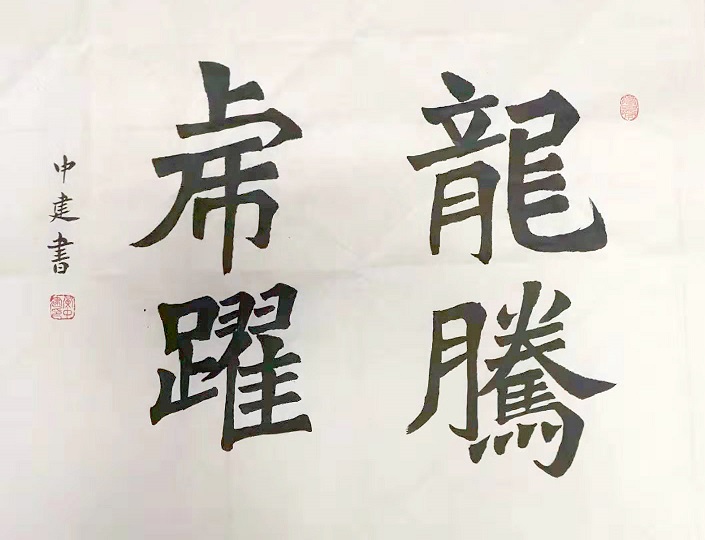 龍騰
虎躍
中建書